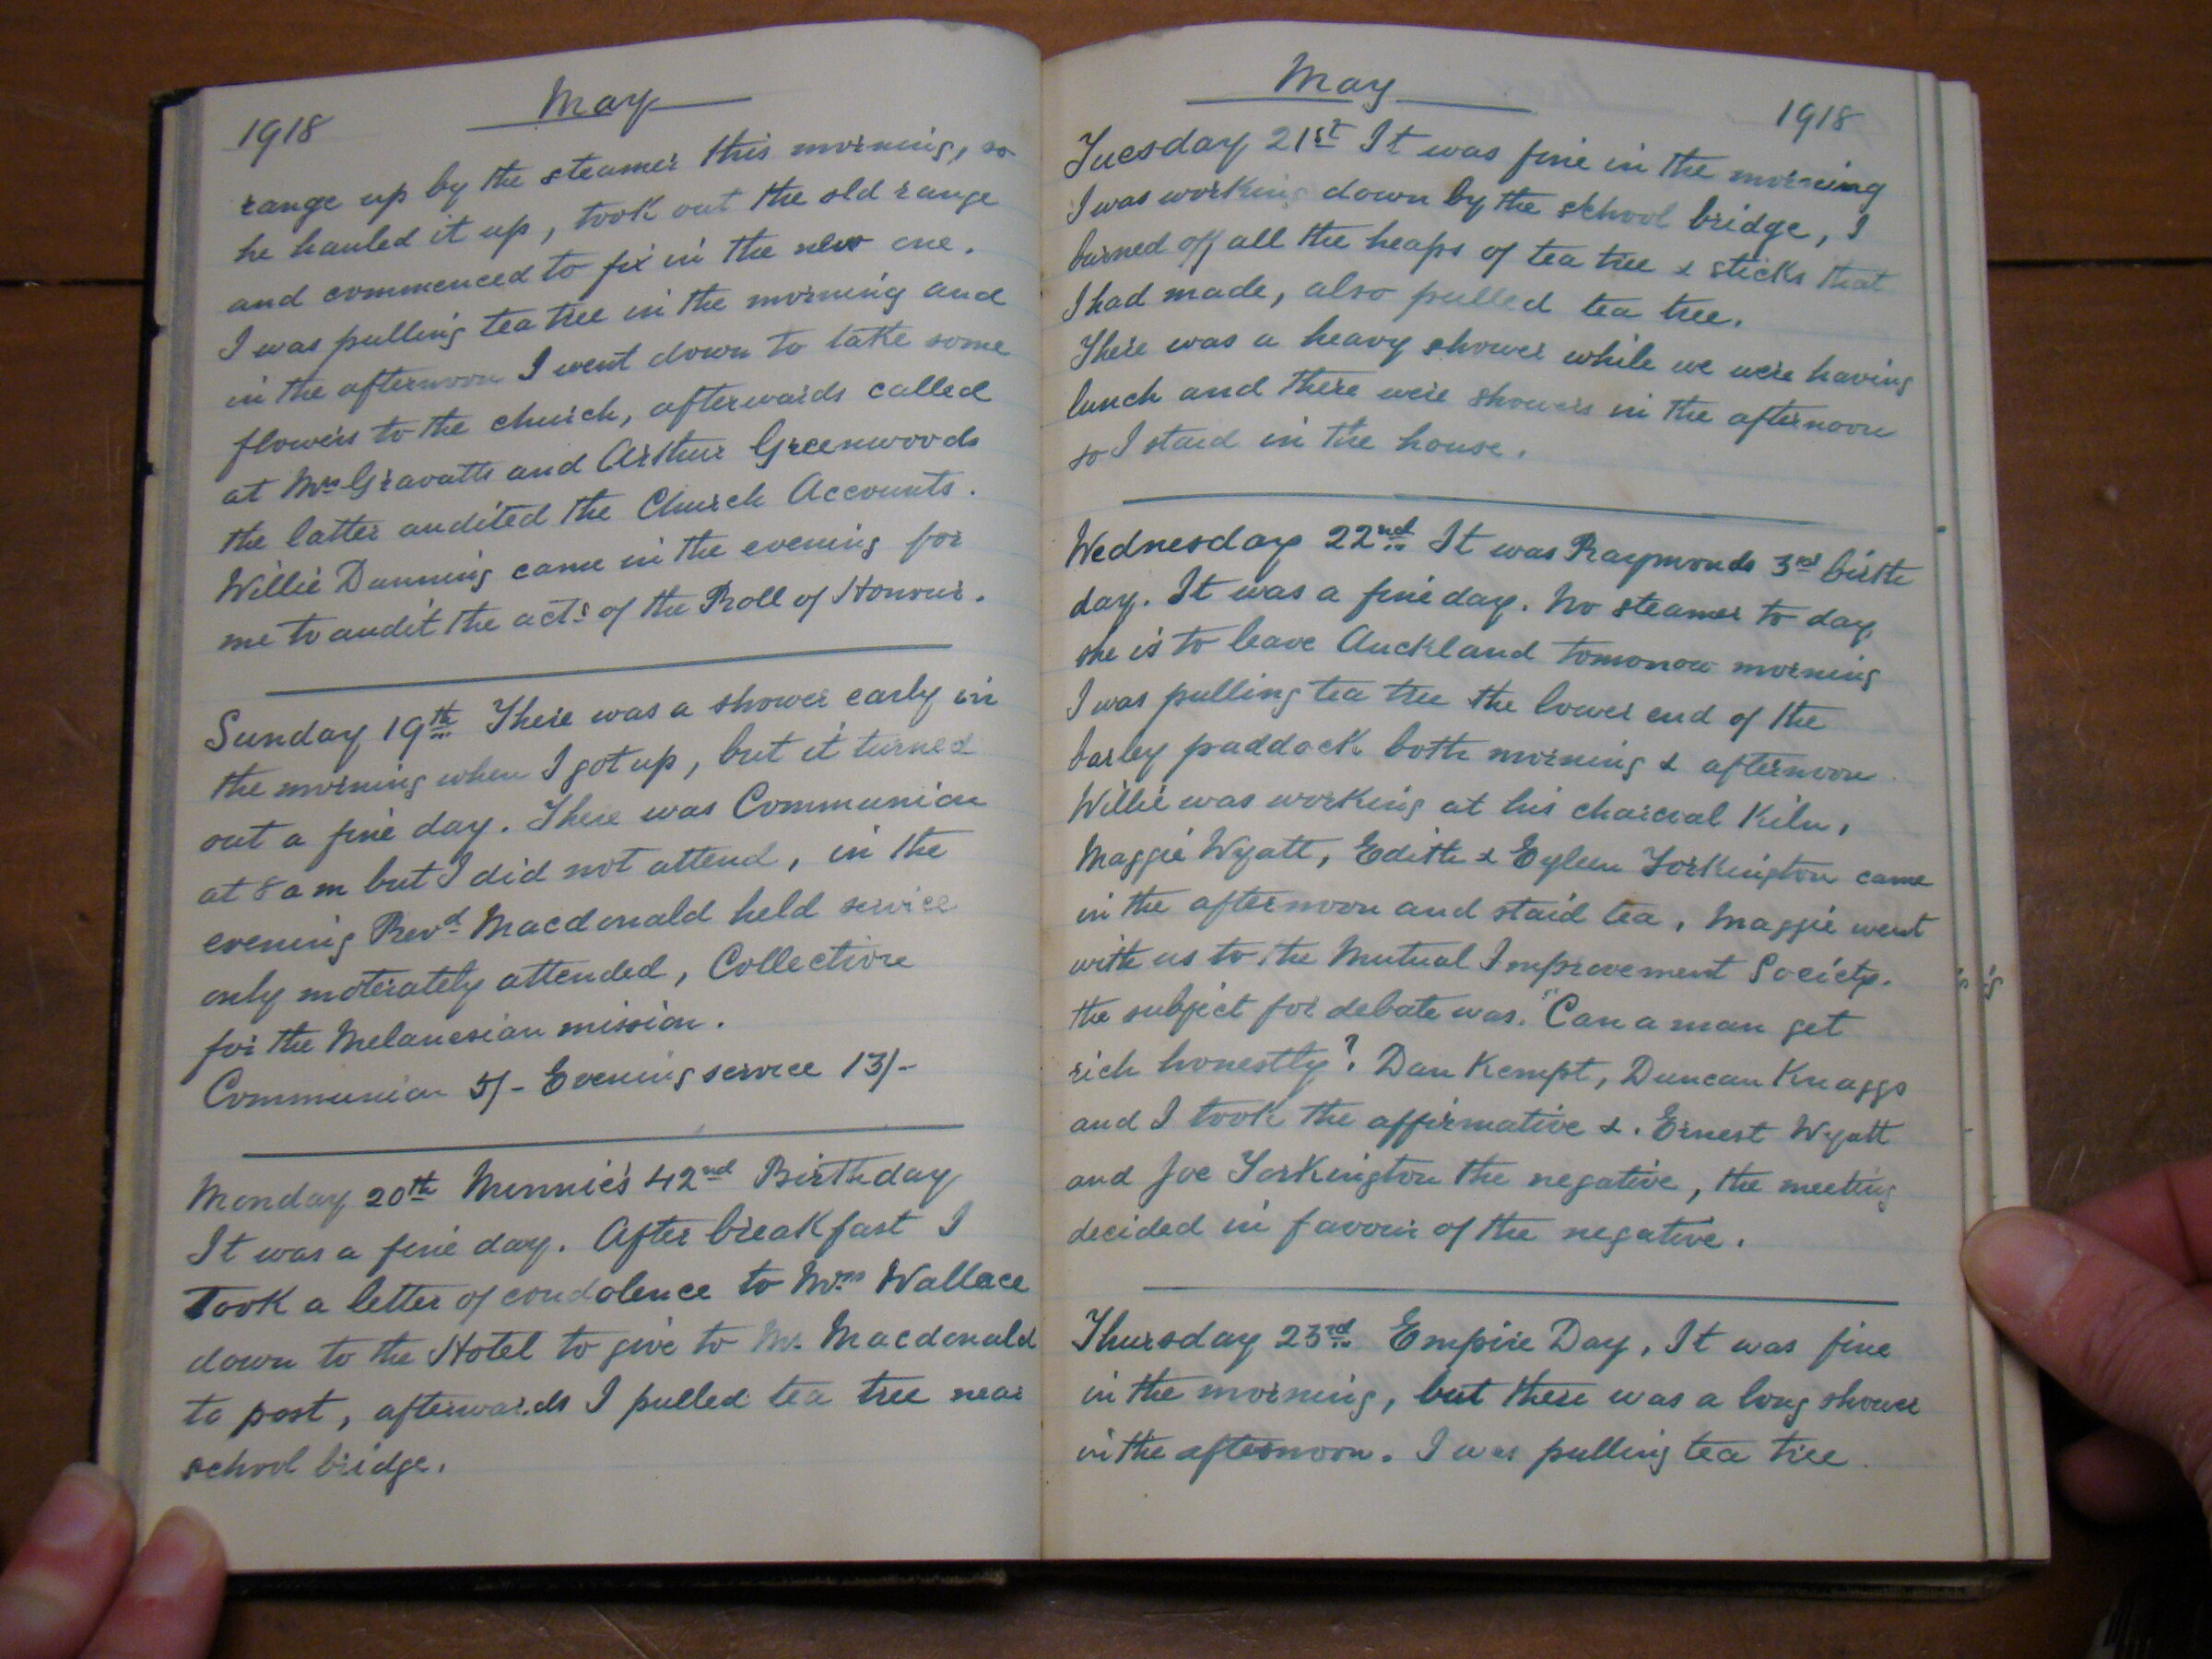 1918 May
range up by the steamer this morning, so
he hauled it up, took out the old range
and commenced to fix in the new one.
I was pulling tea tree in the morning and
in the afternoon I went down to take some
flowers to the church, afterwards called
at Mrs Gravatts and Arthur Greenwoods
the latter audited the Church Accounts.
Willie Dunning came in the evening for
me to audit the acts of the Roll of Honour.
Sunday 19th There was a shower early in
the morning when I got up, but it turned
out a fine day. There was Communion
at 8 am but I did not attend, in the
evening Revd Macdonald held service
only moterately attended, Collection
for the Melanesian mission.
Communion 5/- Evening service 13/-
Monday 20th Minnie's 42nd Birthday
It was a fine day. After breakfast I
Took a letter of condolence to Mrs Wallace
down to the Hotel to give to Mr. Macdonald
to post, afterwards I pulled tea tree near
school bridge.
May 1918
Tuesday 21st It was fine in the morning
I was working down by the school bridge, I
burned off all the heaps of tea tree & sticks that
I had made, also pulled tea tree.
There was a heavy shower while we were having
lunch and there were showers in the afternoon
so I staid in the house.
Wednesday 22nd It was Raymonds 3rd birth
day. It was a fine day. No steamer to day
she is to leave Auckland tomorrow morning
I was pulling tea tree the lower end of the
barley paddock both morning & afternoon
Willie was working at his charcoal Kiln,
Maggie Wyatt, Edith & Eyleen Yorkington came
in the afternoon and staid tea, Maggie went
with us to the Mutual Improvement Society.
the subject for debate was. "Can a man get
rich honestly? Dan Kempt, Duncan Knaggs
and I took the affirmative &. Ernest Wyatt
and Joe Yorkington the negative, the meeting
decided in favour of the negative.
Thursday 23rd Empire Day, It was fine
in the morning, but there was a long shower
in the afternoon. I was pulling tea tree